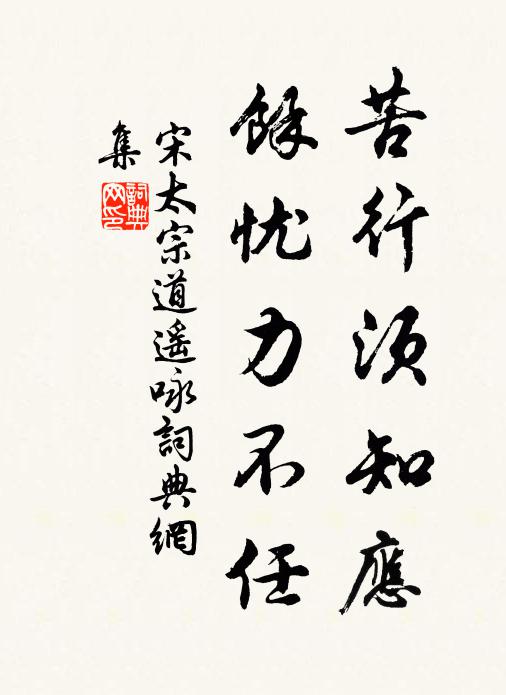 苦行须知應
餘忧力不任
宋太宗道遥咏詞典網
集
詞典
网印